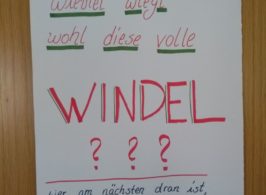 Wieviel wiegt
wohl diese volle
WINDEL
? ? ?
wer am nächsten dran ist,